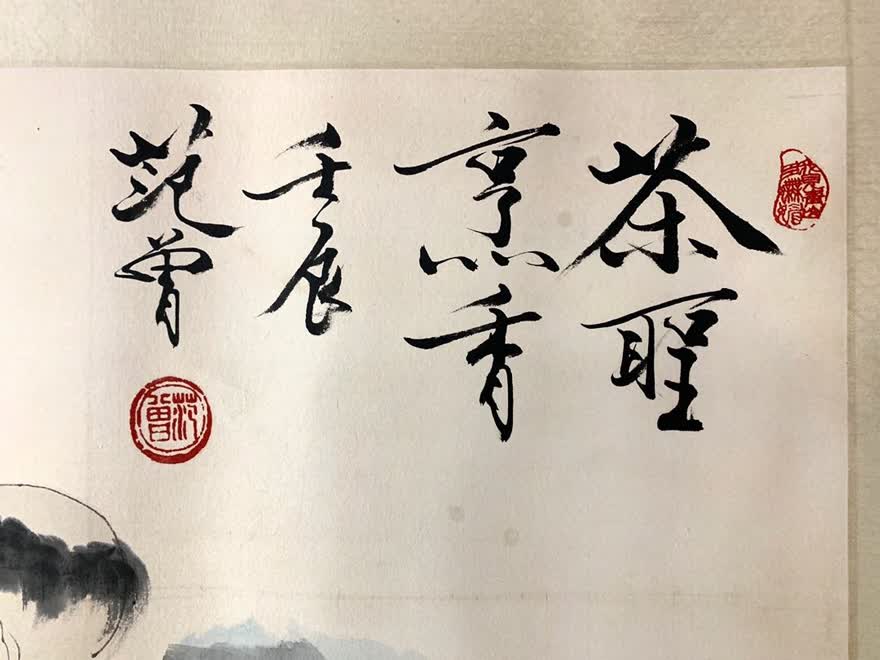 茶聖
烹香
壬辰
范曾
范曾